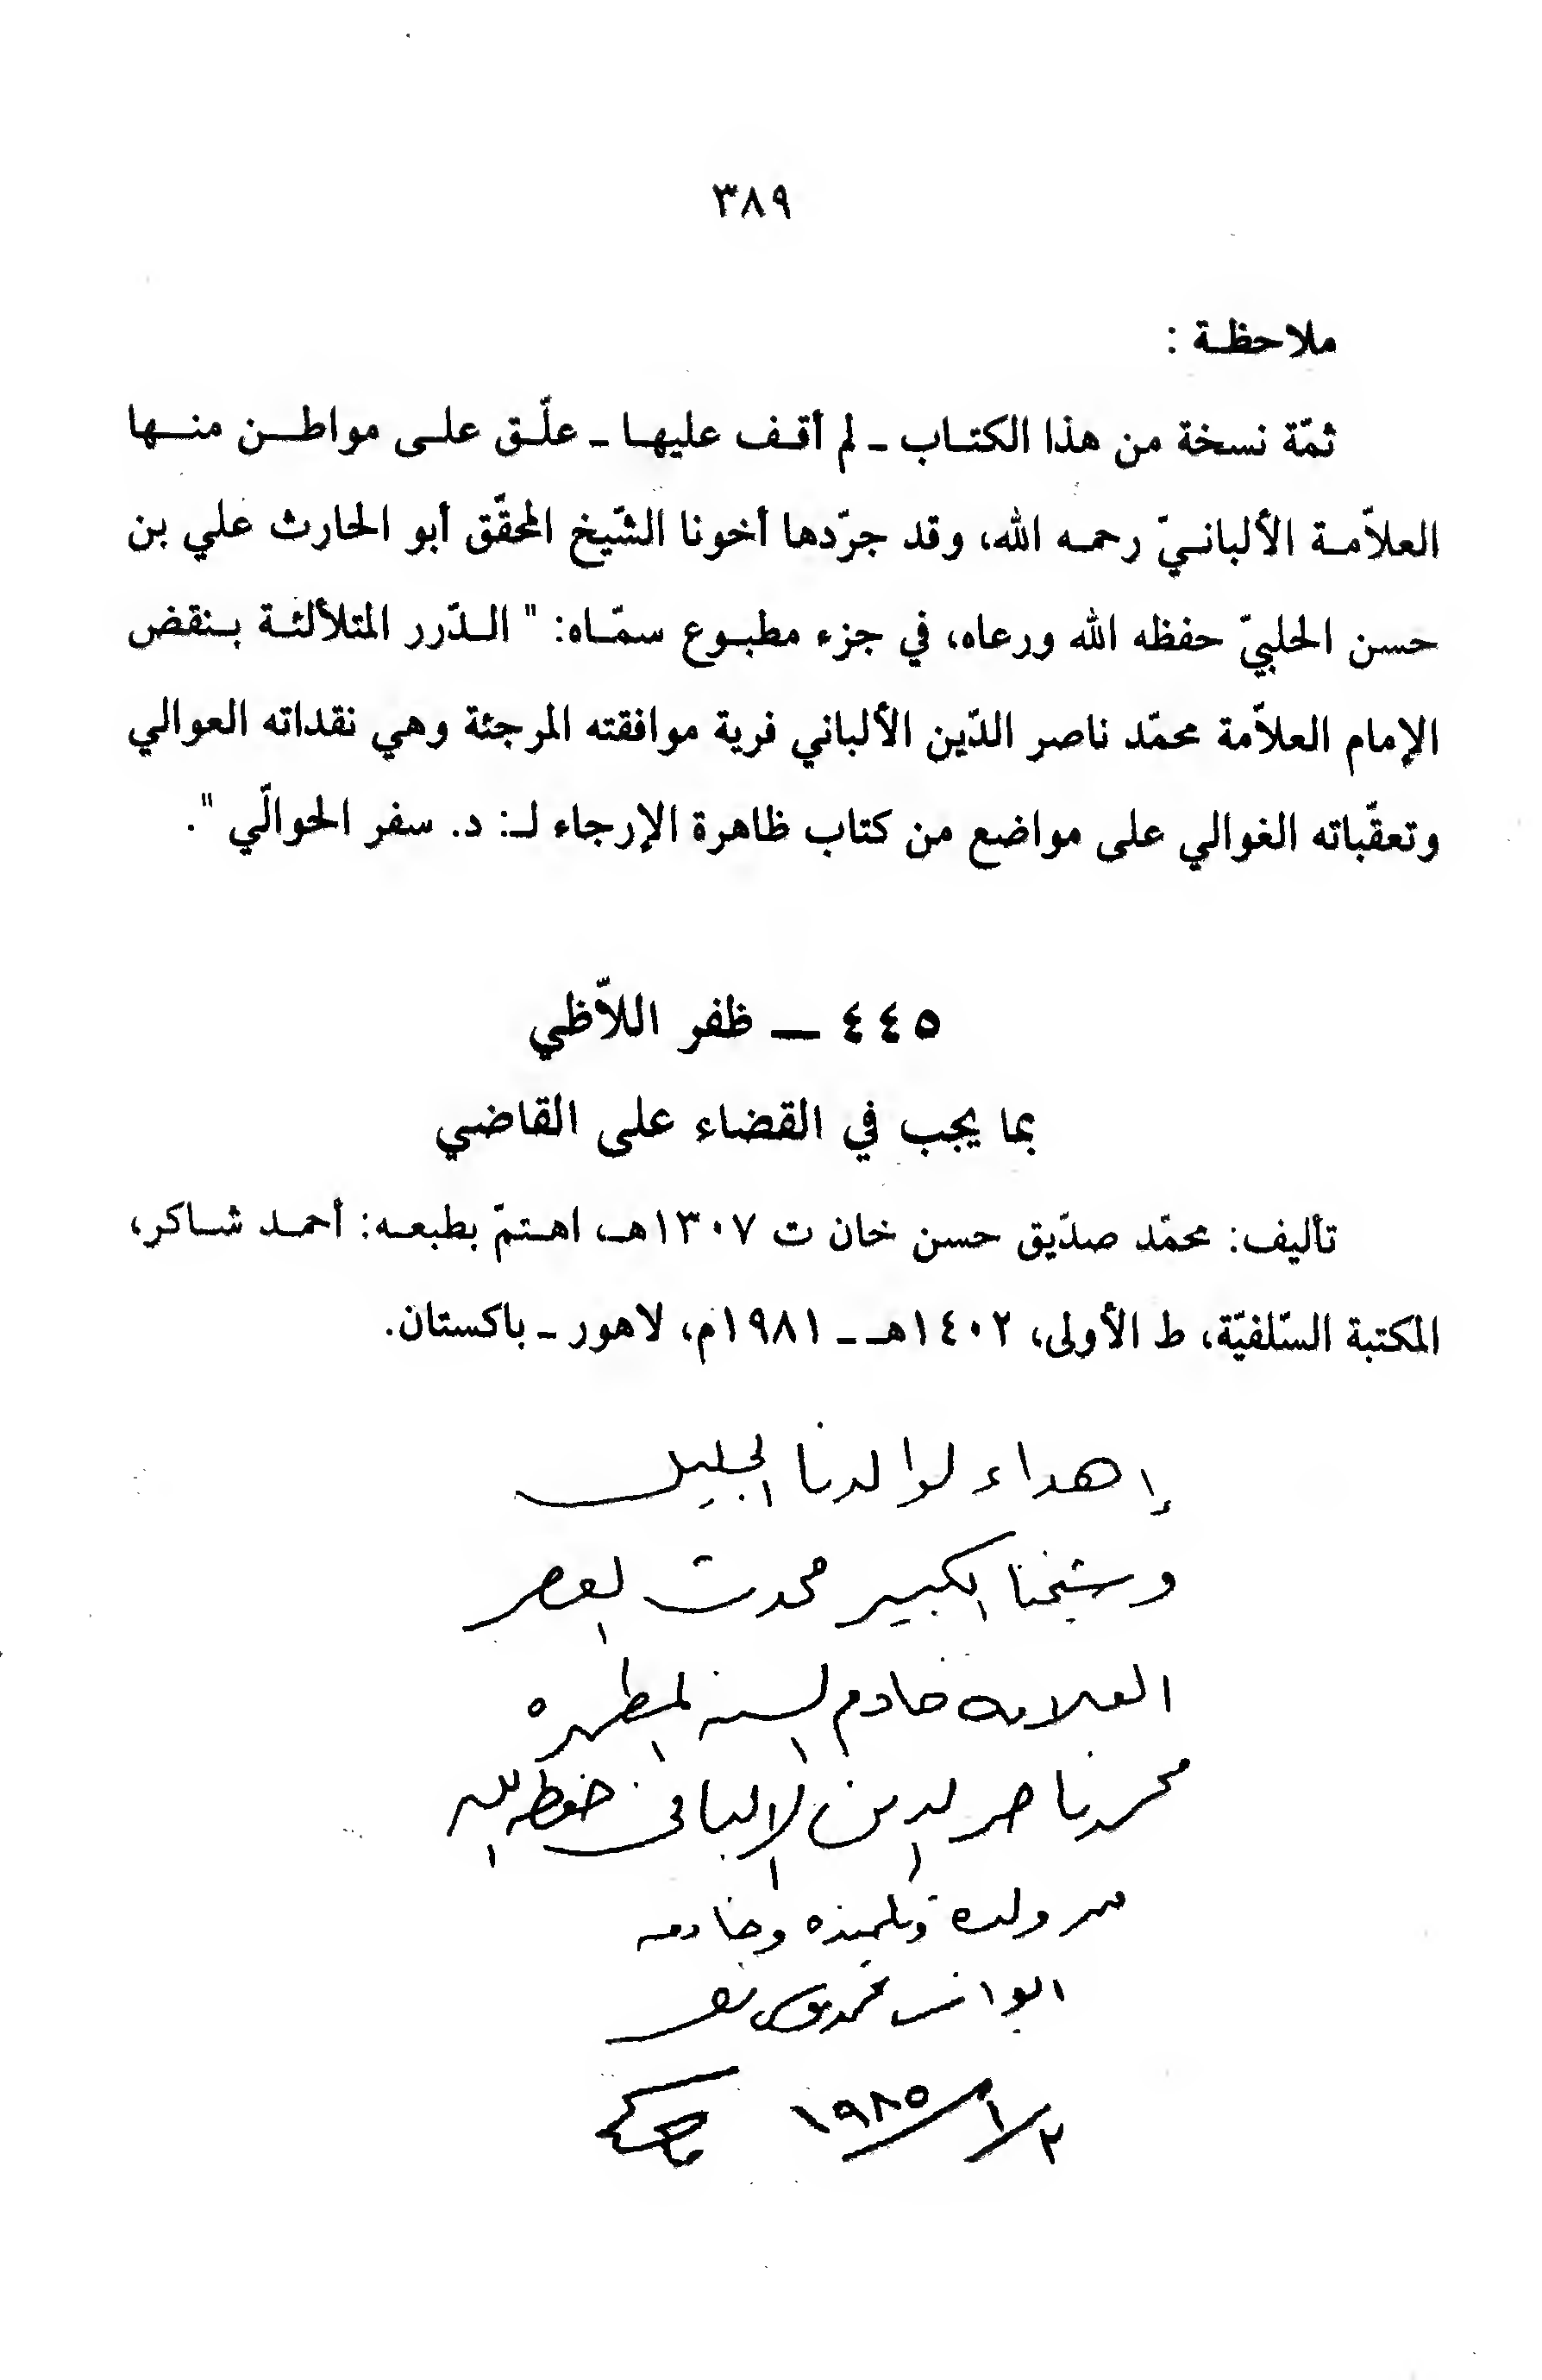 ٣٨٩
ملاحظـة :
ثمّة نسخة من هذا الكتـاب ـ لم أقـف عليهـا ـ علّـق علـى مواطـن منـها
العلاّمـة الألبانـيّ رحمـه الله، وقد جرّدها أخونا الشّيخ المحقّق أبو الحارث علي بن
حسن الحلبيّ حفظه الله ورعاه، في جزء مطبـوع سمّـاه: " الـدّرر المتلألئـة بـنقض
الإمام العلاّمة محمّد ناصر الدّين الألباني فرية موافقته المرجئة وهي نقداته العوالي
وتعقّباته الغوالي على مواضع من كتاب ظاهرة الإرجاء لـ: د. سفر الحوالّي ".
٤٤٥ ـــ ظفر اللاّظي
بما يجب في القضاء على القاضي
تأليف: محمّد صدّيق حسن خان ت ١٣٠٧هـ، اهـتمّ بطبعـه: أحمـد شـاكر،
المكتبة السّلفيّة، ط الأولى، ١٤٠٢هـ ـ ١٩٨١م، لاهور ـ باكستان.
إهداء لوالدنا الجليل
وشيخنا الكبير محدث العصر
العلامه خادم السنه المطهره
محمد ناصر الدين الالباني حفظه الله
من ولده وتلميذه وخادمه
ابو انس محمد موسى نصر
٢/١/١٩٨٥